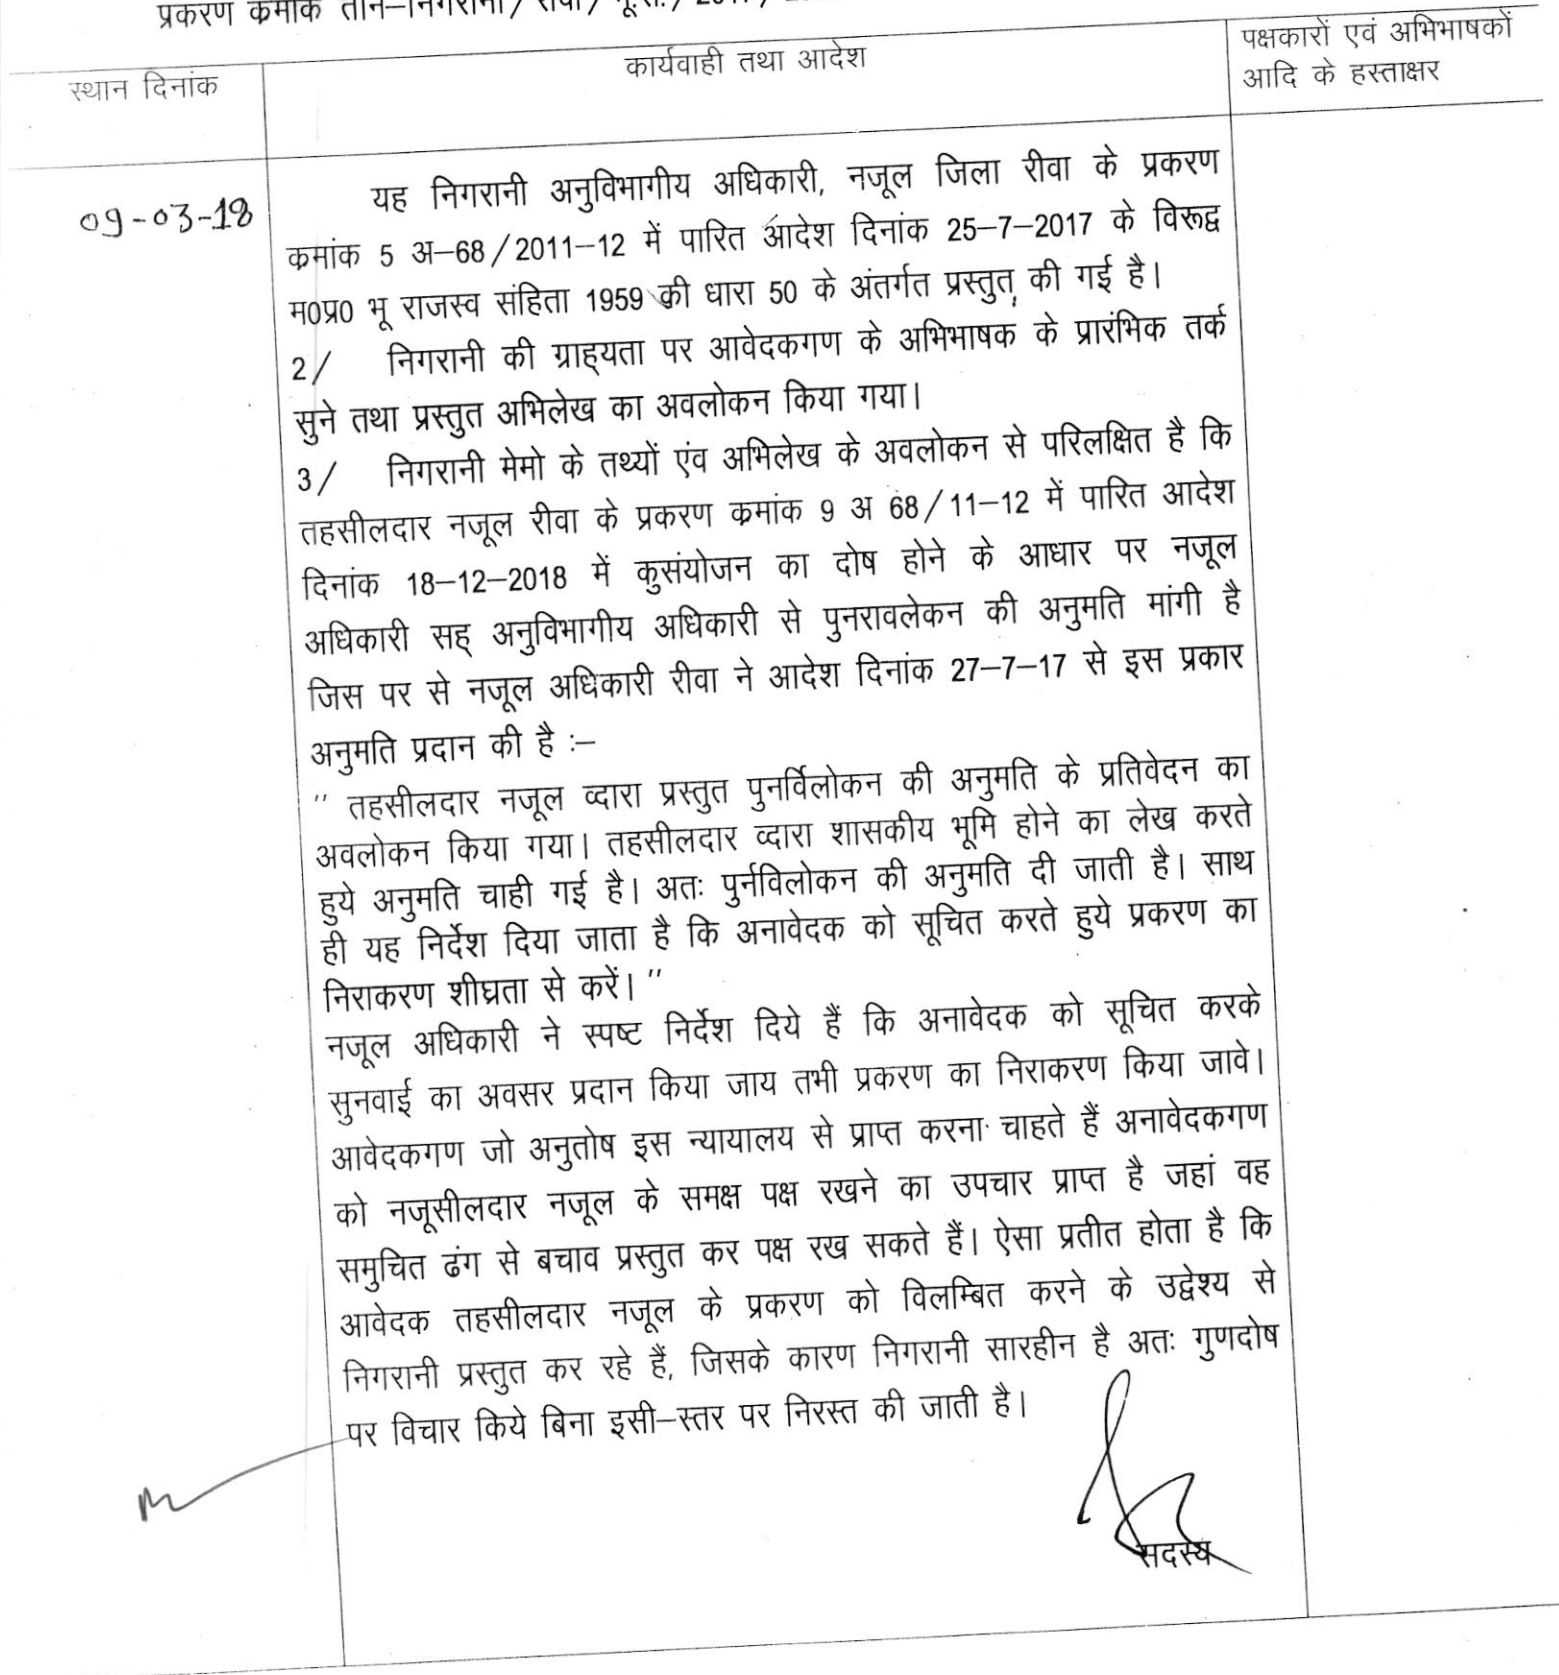 प्रकरण क्रमांक तीन–निगरानी/
स्थान दिनांक
कार्यवाही तथा आदेश
पक्षकारों एवं अभिभाषकों
आदि के हस्ताक्षर
09-03-18
यह निगरानी अनुविभागीय अधिकारी, नजूल जिला रीवा के प्रकरण
क्रमांक 5 अ–68/2011–12 में पारित आदेश दिनांक 25–7–2017 के विरूद्व
म0प्र0 भू राजस्व संहिता 1959 की धारा 50 के अंतर्गत प्रस्तुत की गई है।
2/ निगरानी की ग्राह्यता पर आवेदकगण के अभिभाषक के प्रारंभिक तर्क
सुने तथा प्रस्तुत अभिलेख का अवलोकन किया गया।
3/ निगरानी मेमो के तथ्यों एंव अभिलेख के अवलोकन से परिलक्षित है कि
तहसीलदार नजूल रीवा के प्रकरण क्रमांक 9 अ 68/11–12 में पारित आदेश
दिनांक 18–12–2018 में कुसंयोजन का दोष होने के आधार पर नजूल
अधिकारी सह् अनुविभागीय अधिकारी से पुनरावलेकन की अनुमति मांगी है
जिस पर से नजूल अधिकारी रीवा ने आदेश दिनांक 27–7–17 से इस प्रकार
अनुमति प्रदान की है :–
'' तहसीलदार नजूल व्दारा प्रस्तुत पुनर्विलोकन की अनुमति के प्रतिवेदन का
अवलोकन किया गया। तहसीलदार व्दारा शासकीय भूमि होने का लेख करते
हुये अनुमति चाही गई है। अतः पुर्नविलोकन की अनुमति दी जाती है। साथ
ही यह निर्देश दिया जाता है कि अनावेदक को सूचित करते हुये प्रकरण का
निराकरण शीघ्रता से करें। ''
नजूल अधिकारी ने स्पष्ट निर्देश दिये हैं कि अनावेदक को सूचित करके
सुनवाई का अवसर प्रदान किया जाय तभी प्रकरण का निराकरण किया जावे।
आवेदकगण जो अनुतोष इस न्यायालय से प्राप्त करना चाहते हैं अनावेदकगण
को नजूसीलदार नजूल के समक्ष पक्ष रखने का उपचार प्राप्त है जहां वह
समुचित ढंग से बचाव प्रस्तुत कर पक्ष रख सकते हैं। ऐसा प्रतीत होता है कि
आवेदक तहसीलदार नजूल के प्रकरण को विलम्बित करने के उद्वेश्य से
निगरानी प्रस्तुत कर रहे हैं, जिसके कारण निगरानी सारहीन है अतः गुणदोष
पर विचार किये बिना इसी–स्तर पर निरस्त की जाती है।
सदस्य